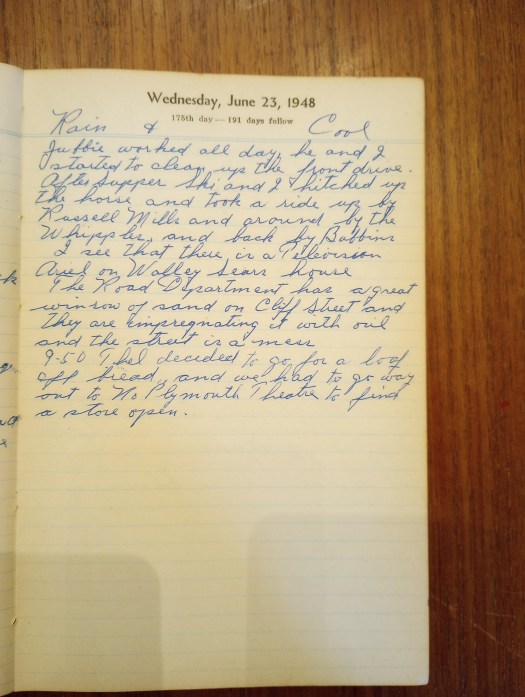 Wednesday, June 23, 1948
175th day — 191 days follow
Rain & Cool
Jubbie worked all day, he and I
started to clean up the front drive.
After supper Ski and I hitched up
the horse and took a ride up by
Russell Mills and around by the
Whipples, and back by Babbins
I see that there is a Television
on Walley Sears house
The Road Department has a great
winrow of sand on Cliff Street and
they are Empregnating it with oil
and the street is a mess
9-50 decided to go for a loof
off bread, and we had to go way
out to No Plymouth Theatre to find
a store open.